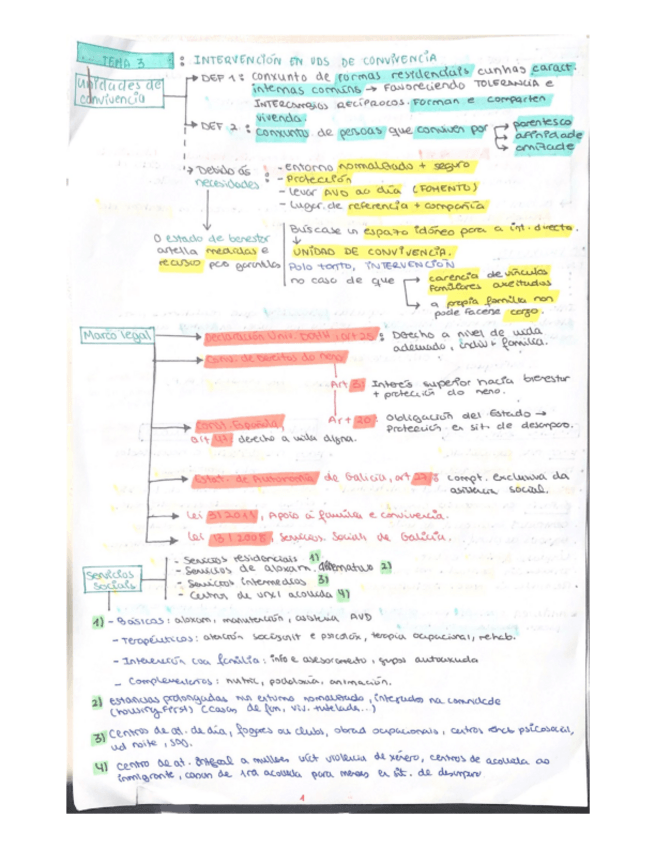 TEMA 3 : INTERVENCIÓN EN UDS DE CONVIVENCIA
Unidades de convivencia
DEF 1: conxunto de formas residenciais cunhas caract.
internas comúns → FAVORECIENDO TOLERANCIA E
INTERCAMBIOS RECÍPROCOS. Forman e comparten
vivenda.
DEF 2: conxunto de persoas que conviven por
parentesco
afinidade
amizade
Debido ás necesidades :
- entorno normalizado + seguro
- Protección
- Levar AVD ao día (FOMENTO)
- Lugar de referencia + compañía
O estado de benestar
artella medidas e
recursos pra garantilas
Búscase un espazo idóneo para a int. directa.
↓
UNIDAD DE CONVIVENCIA.
Polo tanto, INTERVENCIÓN
no caso de que
carencia de vínculos
familiares axeitados
a propia familia non
pode facerse cargo.
Marco legal
Declaración Univ. DDHH, art 25 : Derecho a nivel de vida
adecuado, indiv + familia.
Conv. de Dereitos do neno
Art 3: Interés superior hacia bienestar
+ protección do neno.
Art 20: Obligación del Estado →
Protección en sit. de desamparo.
Const. Española,
art 47 derecho a vida digna.
Estat. de Autonomía de Galicia, art 27: compt. exclusiva da
asistencia social.
Lei 3/2011, Apoio á familia e convivencia.
Lei 13/2008, Servizos Sociais de Galicia.
Servicios sociais
- Servicios residenciais 1)
- Servicios de aloxam. alternativo 2)
- Servicios intermedios 3)
- Centros de urxl acollida 4)
1) - Básicas: aloxam, manutención, asistencia AVD
- Terapéuticos: atención sociosanit e psicolóx, terapia ocupacional, rehab.
- Intervención coa familia: info e asesoramento, grupos autoaxuda
- Complementarios: nutric, podoloxía, animación.
2) estancias prolongadas nun entorno normalizado, integrados na comunidade
(housing First) (casas de fam, viv. tutelada...)
3) Centros de at. de día, fogares ou clubs, obrad ocupacionais, centros rehab psicosocial,
ud noite, SAD.
4) Centro de at. integral a mulleres vict violencia de xénero, centros de acollida ao
inmigrante, casas de 1ra acollida para menores en sit. de desamparo
1